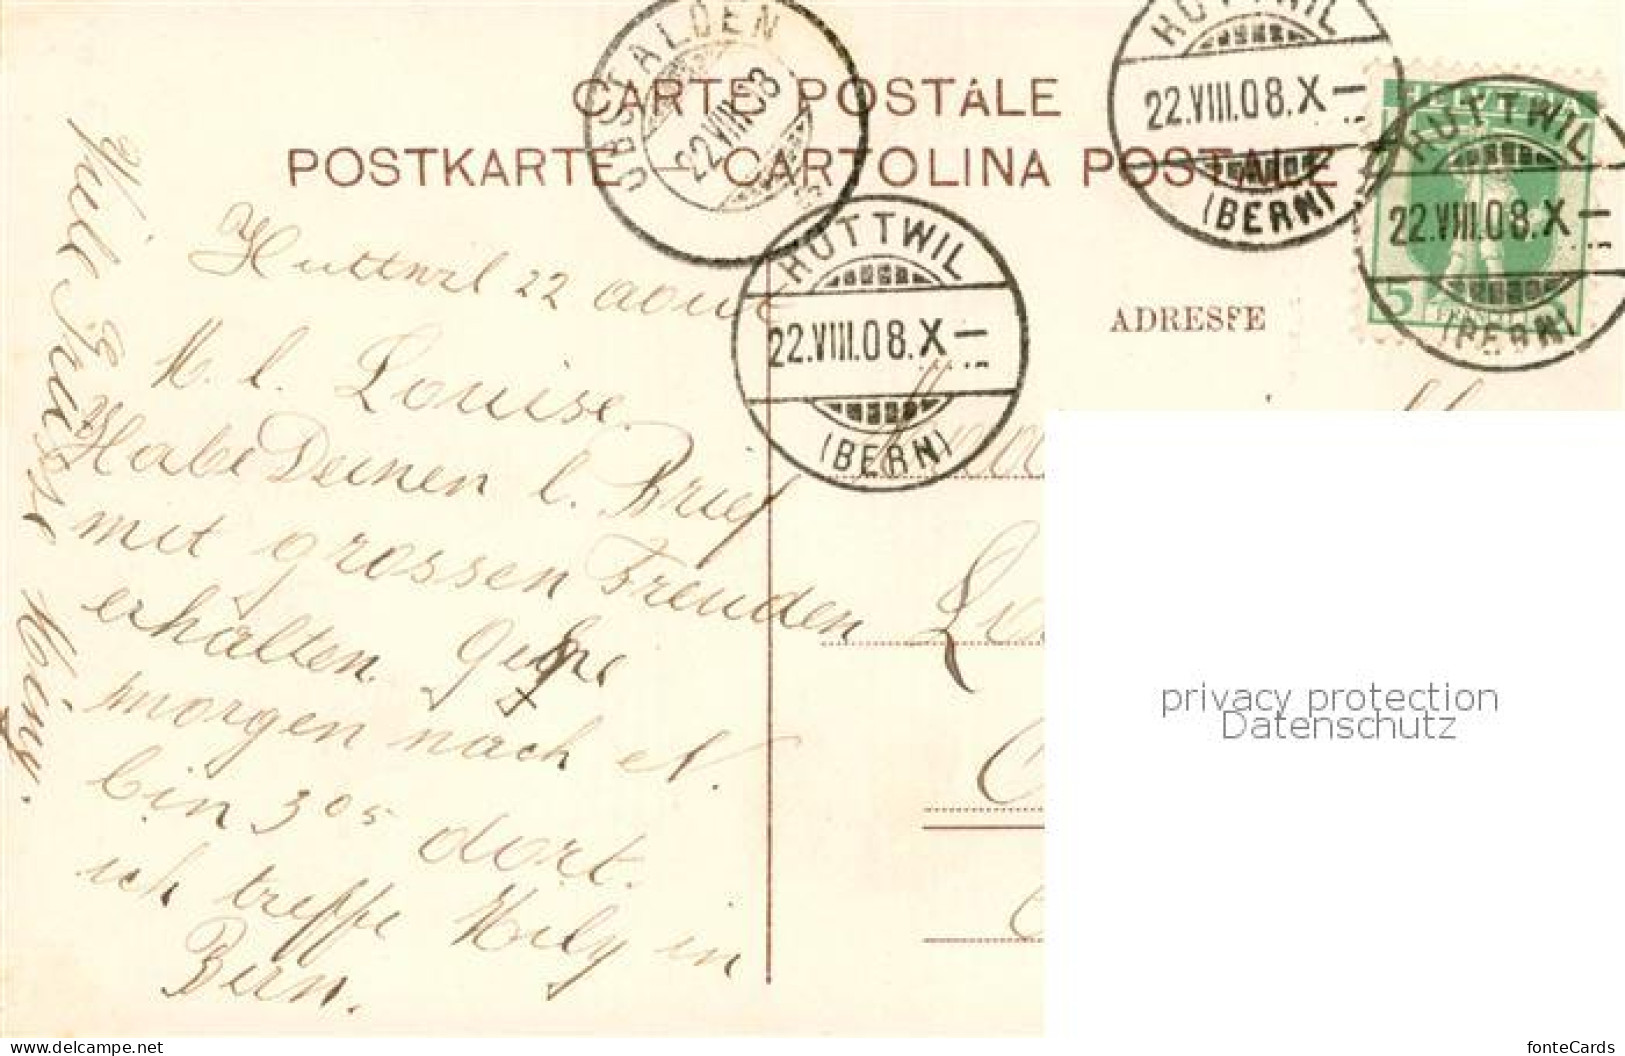 CARTE POSTALE
POSTKARTE – CARTOLINA POSTALE
OBSTALDEN
22.VIII.08
HUTTWIL
22.VIII.08.X–
(BERN)
HUTTWIL
22.VIII.08.X–
(BERN)
HUTTWIL
22.VIII.08.X–
(BERN)
HELVETIA
5
ADRESSE
Huttwil 22 aout
M. l. Louise.
Habe Deinen l. Brief
mit grossen Freuden
erhalten. Gehe
morgen nach N.
bin 3 05 dort.
ich treffe Mily in
Bern.
Viele Grüsse
privacy protection
Datenschutz
www.delcampe.net
fonteCards